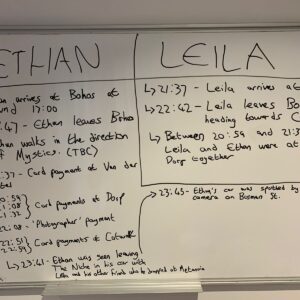 ETHAN
an arrives at Bohos at
und 17:00
:47 - Ethan leaves Boho
han walks in the direction
f Mystics. (TBC)
:37 - Card payment at Van der
tel
:08 - Card payments at Dorp
:32
:08 - 'Photographer' payment
22:51
22:59 Card payments at
↳ 23:41 - Ethan was seen leaving
The Niche in his car with
Leila and his other friend who he dropped at Metanoia
LEILA
↳ 21:37 - Leila arrives a
↳ 22:42 - Leila leaves Bo
heading towards C
↳ Between 20:59 and 21:3
Leila and Ethan were at
Dorp together
23:45 - Ethan's car was spotted by
camera on Bosman St.